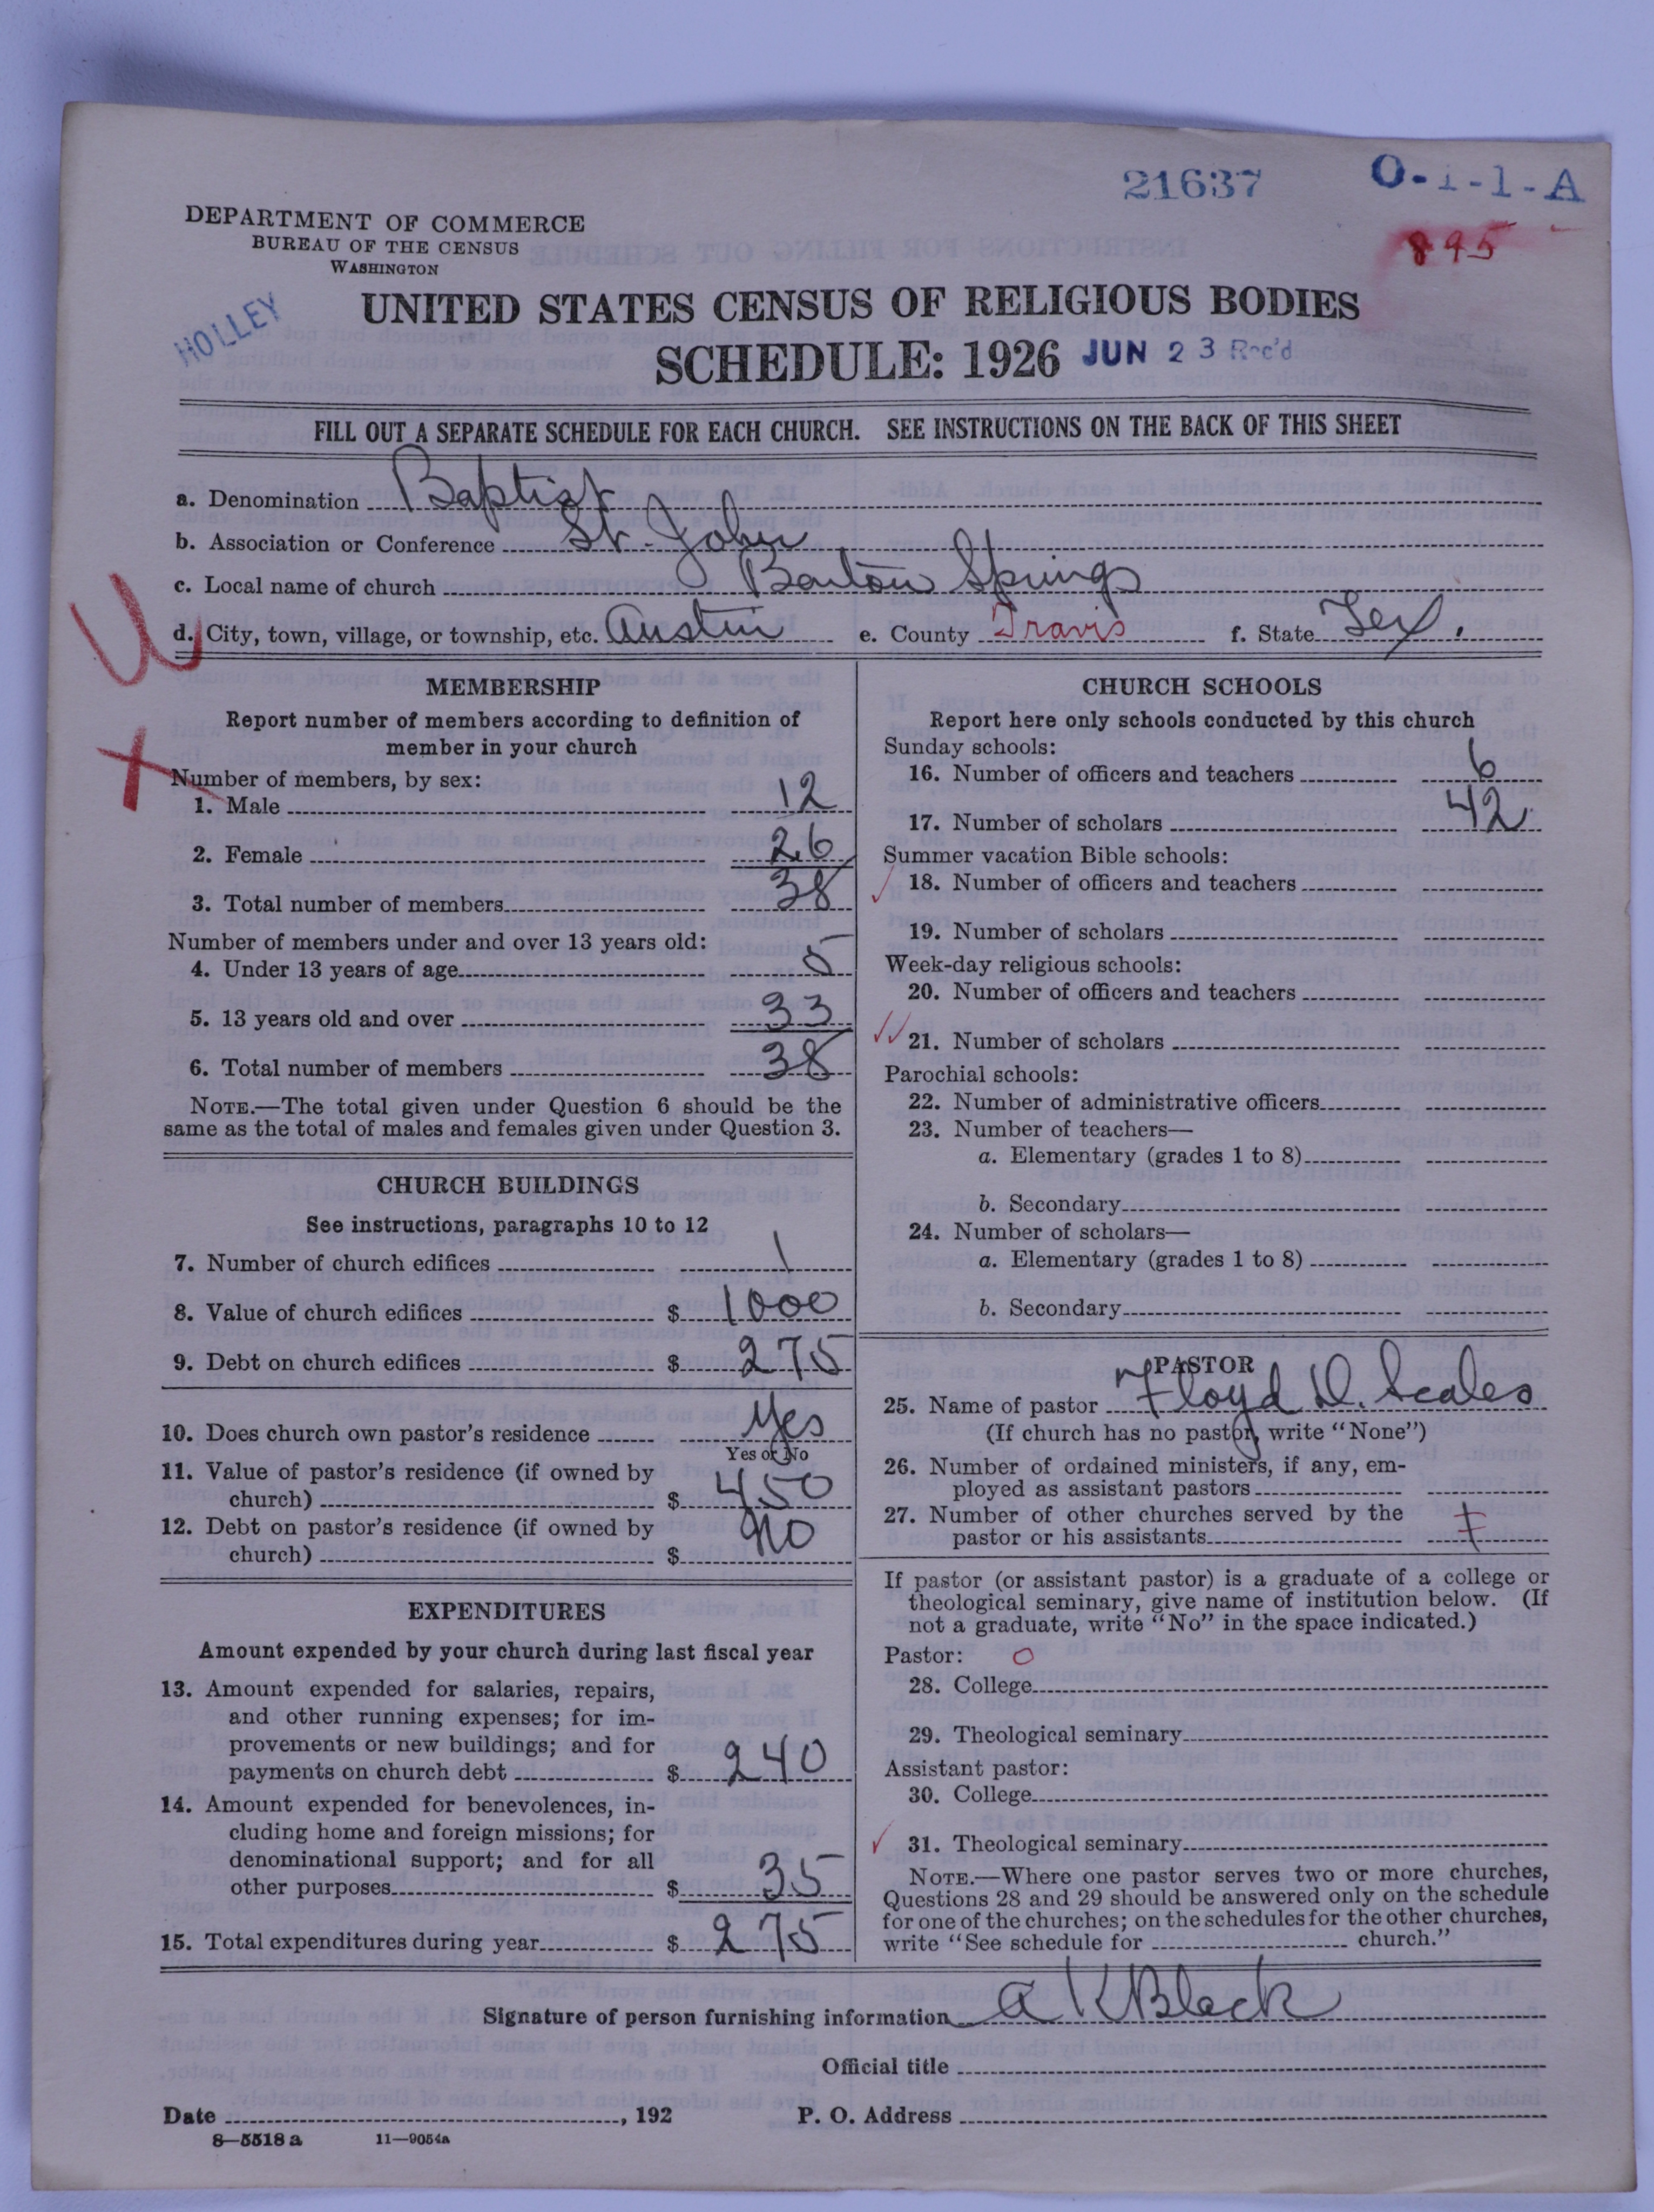 21637 O-1-1-A
895
DEPARTMENT OF COMMERCE
BUREAU OF THE CENSUS
WASHINGTON
HOLLEY
UNITED STATES CENSUS OF RELIGIOUS BODIES
SCHEDULE: 1926 JUN 23 Rec'd
FILL OUT A SEPARATE SCHEDULE FOR EACH CHURCH. SEE INSTRUCTIONS ON THE BACK OF THIS SHEET
a. Denomination Baptist
b. Association or Conference St. John
c. Local name of church Barton Springs
d. City, town, village, or township, etc. Austin e. County Travis f. State Tex.
U
X
MEMBERSHIP
Report number of members according to definition of
member in your church
Number of members, by sex:
1. Male 12
2. Female 26
3. Total number of members 38
Number of members under and over 13 years old:
4. Under 13 years of age 5
5. 13 years old and over 33
6. Total number of members 38
NOTE.—The total given under Question 6 should be the
same as the total of males and females given under Question 3.
CHURCH BUILDINGS
See instructions, paragraphs 10 to 12
7. Number of church edifices 1
8. Value of church edifices $ 1000
9. Debt on church edifices $ 275
10. Does church own pastor's residence Yes
Yes or No
11. Value of pastor's residence (if owned by
church) $ 450
12. Debt on pastor's residence (if owned by
church) $ no
EXPENDITURES
Amount expended by your church during last fiscal year
13. Amount expended for salaries, repairs,
and other running expenses; for im-
provements or new buildings; and for
payments on church debt $ 240
14. Amount expended for benevolences, in-
cluding home and foreign missions; for
denominational support; and for all
other purposes $ 35
15. Total expenditures during year $ 275
CHURCH SCHOOLS
Report here only schools conducted by this church
Sunday schools:
16. Number of officers and teachers 6
17. Number of scholars 42
Summer vacation Bible schools:
18. Number of officers and teachers
19. Number of scholars
Week-day religious schools:
20. Number of officers and teachers
21. Number of scholars
Parochial schools:
22. Number of administrative officers
23. Number of teachers—
a. Elementary (grades 1 to 8)
b. Secondary
24. Number of scholars—
a. Elementary (grades 1 to 8)
b. Secondary
PASTOR
25. Name of pastor Floyd D. Scales
(If church has no pastor, write "None")
26. Number of ordained ministers, if any, em-
ployed as assistant pastors
27. Number of other churches served by the
pastor or his assistants
If pastor (or assistant pastor) is a graduate of a college or
theological seminary, give name of institution below. (If
not a graduate, write "No" in the space indicated.)
Pastor: O
28. College
29. Theological seminary
Assistant pastor:
30. College
31. Theological seminary
NOTE.—Where one pastor serves two or more churches,
Questions 28 and 29 should be answered only on the schedule
for one of the churches; on the schedules for the other churches,
write "See schedule for church."
Signature of person furnishing information A K Black
Official title
Date , 192 P. O. Address
8—5518a 11—9054a